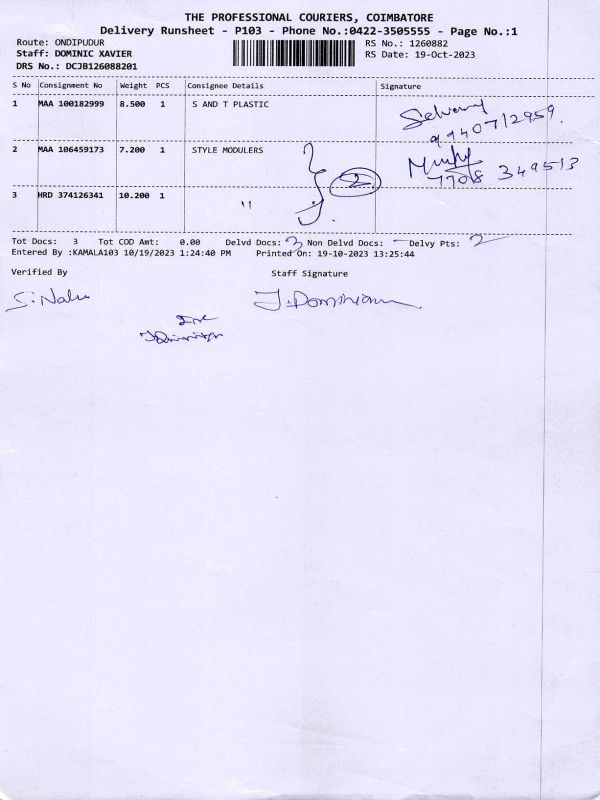 THE PROFESSIONAL COURIERS, COIMBATORE
Delivery Runsheet - P103 - Phone No.:0422-3505555 - Page No.:1
Route: ONDIPUDUR RS No.: 1260882
Staff: DOMINIC XAVIER RS Date: 19-Oct-2023
DRS No.: DCJB126088201
S No Consignment No Weight PCS Consignee Details Signature
1 MAA 100182999 8.500 1 S AND T PLASTIC
9940712959.
2 MAA 106459173 7.200 1 STYLE MODULERS } 2
7708 349513
3 HRD 374126341 10.200 1 "
Tot Docs: 3 Tot COD Amt: 0.00 Delvd Docs: 3 Non Delvd Docs: - Delvy Pts: 2
Entered By :KAMALA103 10/19/2023 1:24:40 PM Printed On: 19-10-2023 13:25:44
Verified By Staff Signature